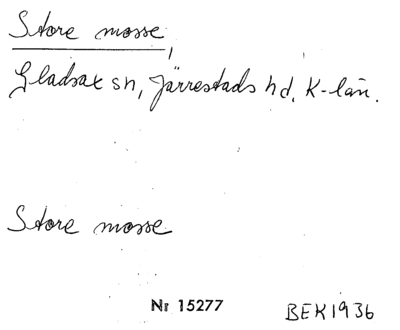 Store mosse,
Gladsax sn, Järrestads hd, K-län.
Store mosse
Nr 15277
BEK1936